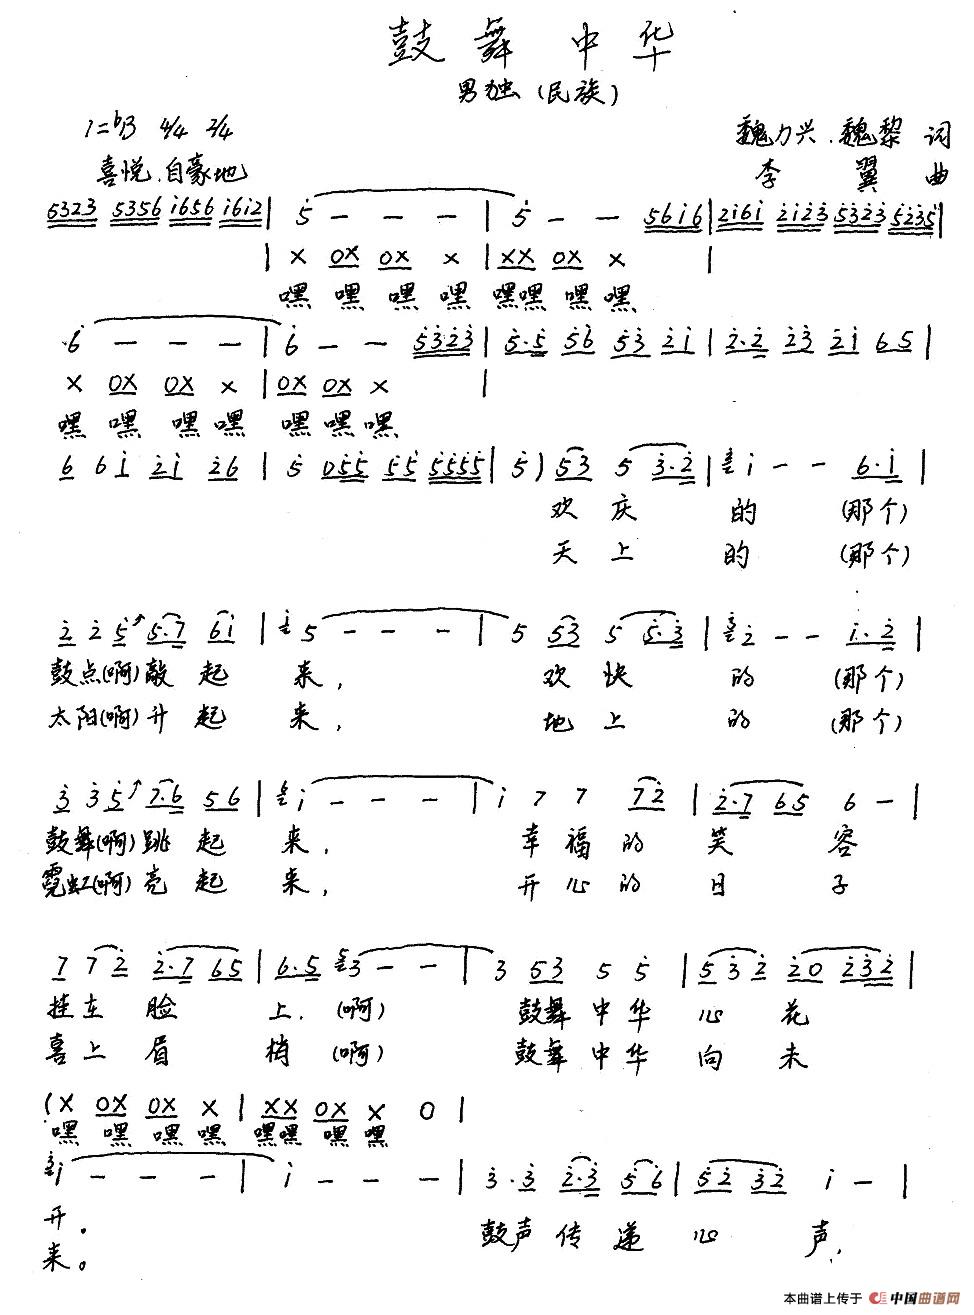 鼓舞中华
男独(民族)
1=♭B 4/4 2/4
魏力兴.魏黎 词
喜悦.自豪地
李翼 曲
5323 5356 i656 i6i2 | 5 — — — | 5 — — 56i6 | 2i6i 2i23 5323 5235 |
| X 0X 0X X | XX 0X X |
嘿 嘿 嘿 嘿 嘿嘿 嘿 嘿
6 — — — | 6 — — 5323 | 5·5 56 53 2i | 2·2 23 2i 65 |
X 0X 0X X | 0X 0X X |
嘿 嘿 嘿 嘿 嘿 嘿 嘿
6 6i 2i 26 | 5 055 55 5555 | 5) 53 5 3·2 | i — — 6·i |
欢 庆 的 (那个)
天 上 的 (那个)
2 2 5 5·7 6i | 5 — — — | 5 53 5 5·3 | 2 — — i·2 |
鼓点(啊)敲 起 来, 欢 快 的 (那个)
太阳(啊)升 起 来, 地 上 的 (那个)
3 3 5 7·6 56 | i — — — | i 7 7 72 | 2·7 65 6 — |
鼓舞(啊)跳 起 来, 幸 福 的 笑 容
霓虹(啊)亮 起 来, 开 心 的 日 子
7 7 2 2·7 65 | 6·5 3 — — | 3 53 5 5 | 5 3 2 20 232 |
挂在 脸 上.(啊) 鼓舞 中 华 心 花
喜上 眉 梢 (啊) 鼓舞 中 华 向 未
(X 0X 0X X | XX 0X X 0 |
嘿 嘿 嘿 嘿 嘿嘿 嘿 嘿
i — — — | i — — — | 3·3 2·3 56 | 52 32 i — |
开。 鼓声 传 递 心 声,
来。
本曲谱上传于 中国曲谱网